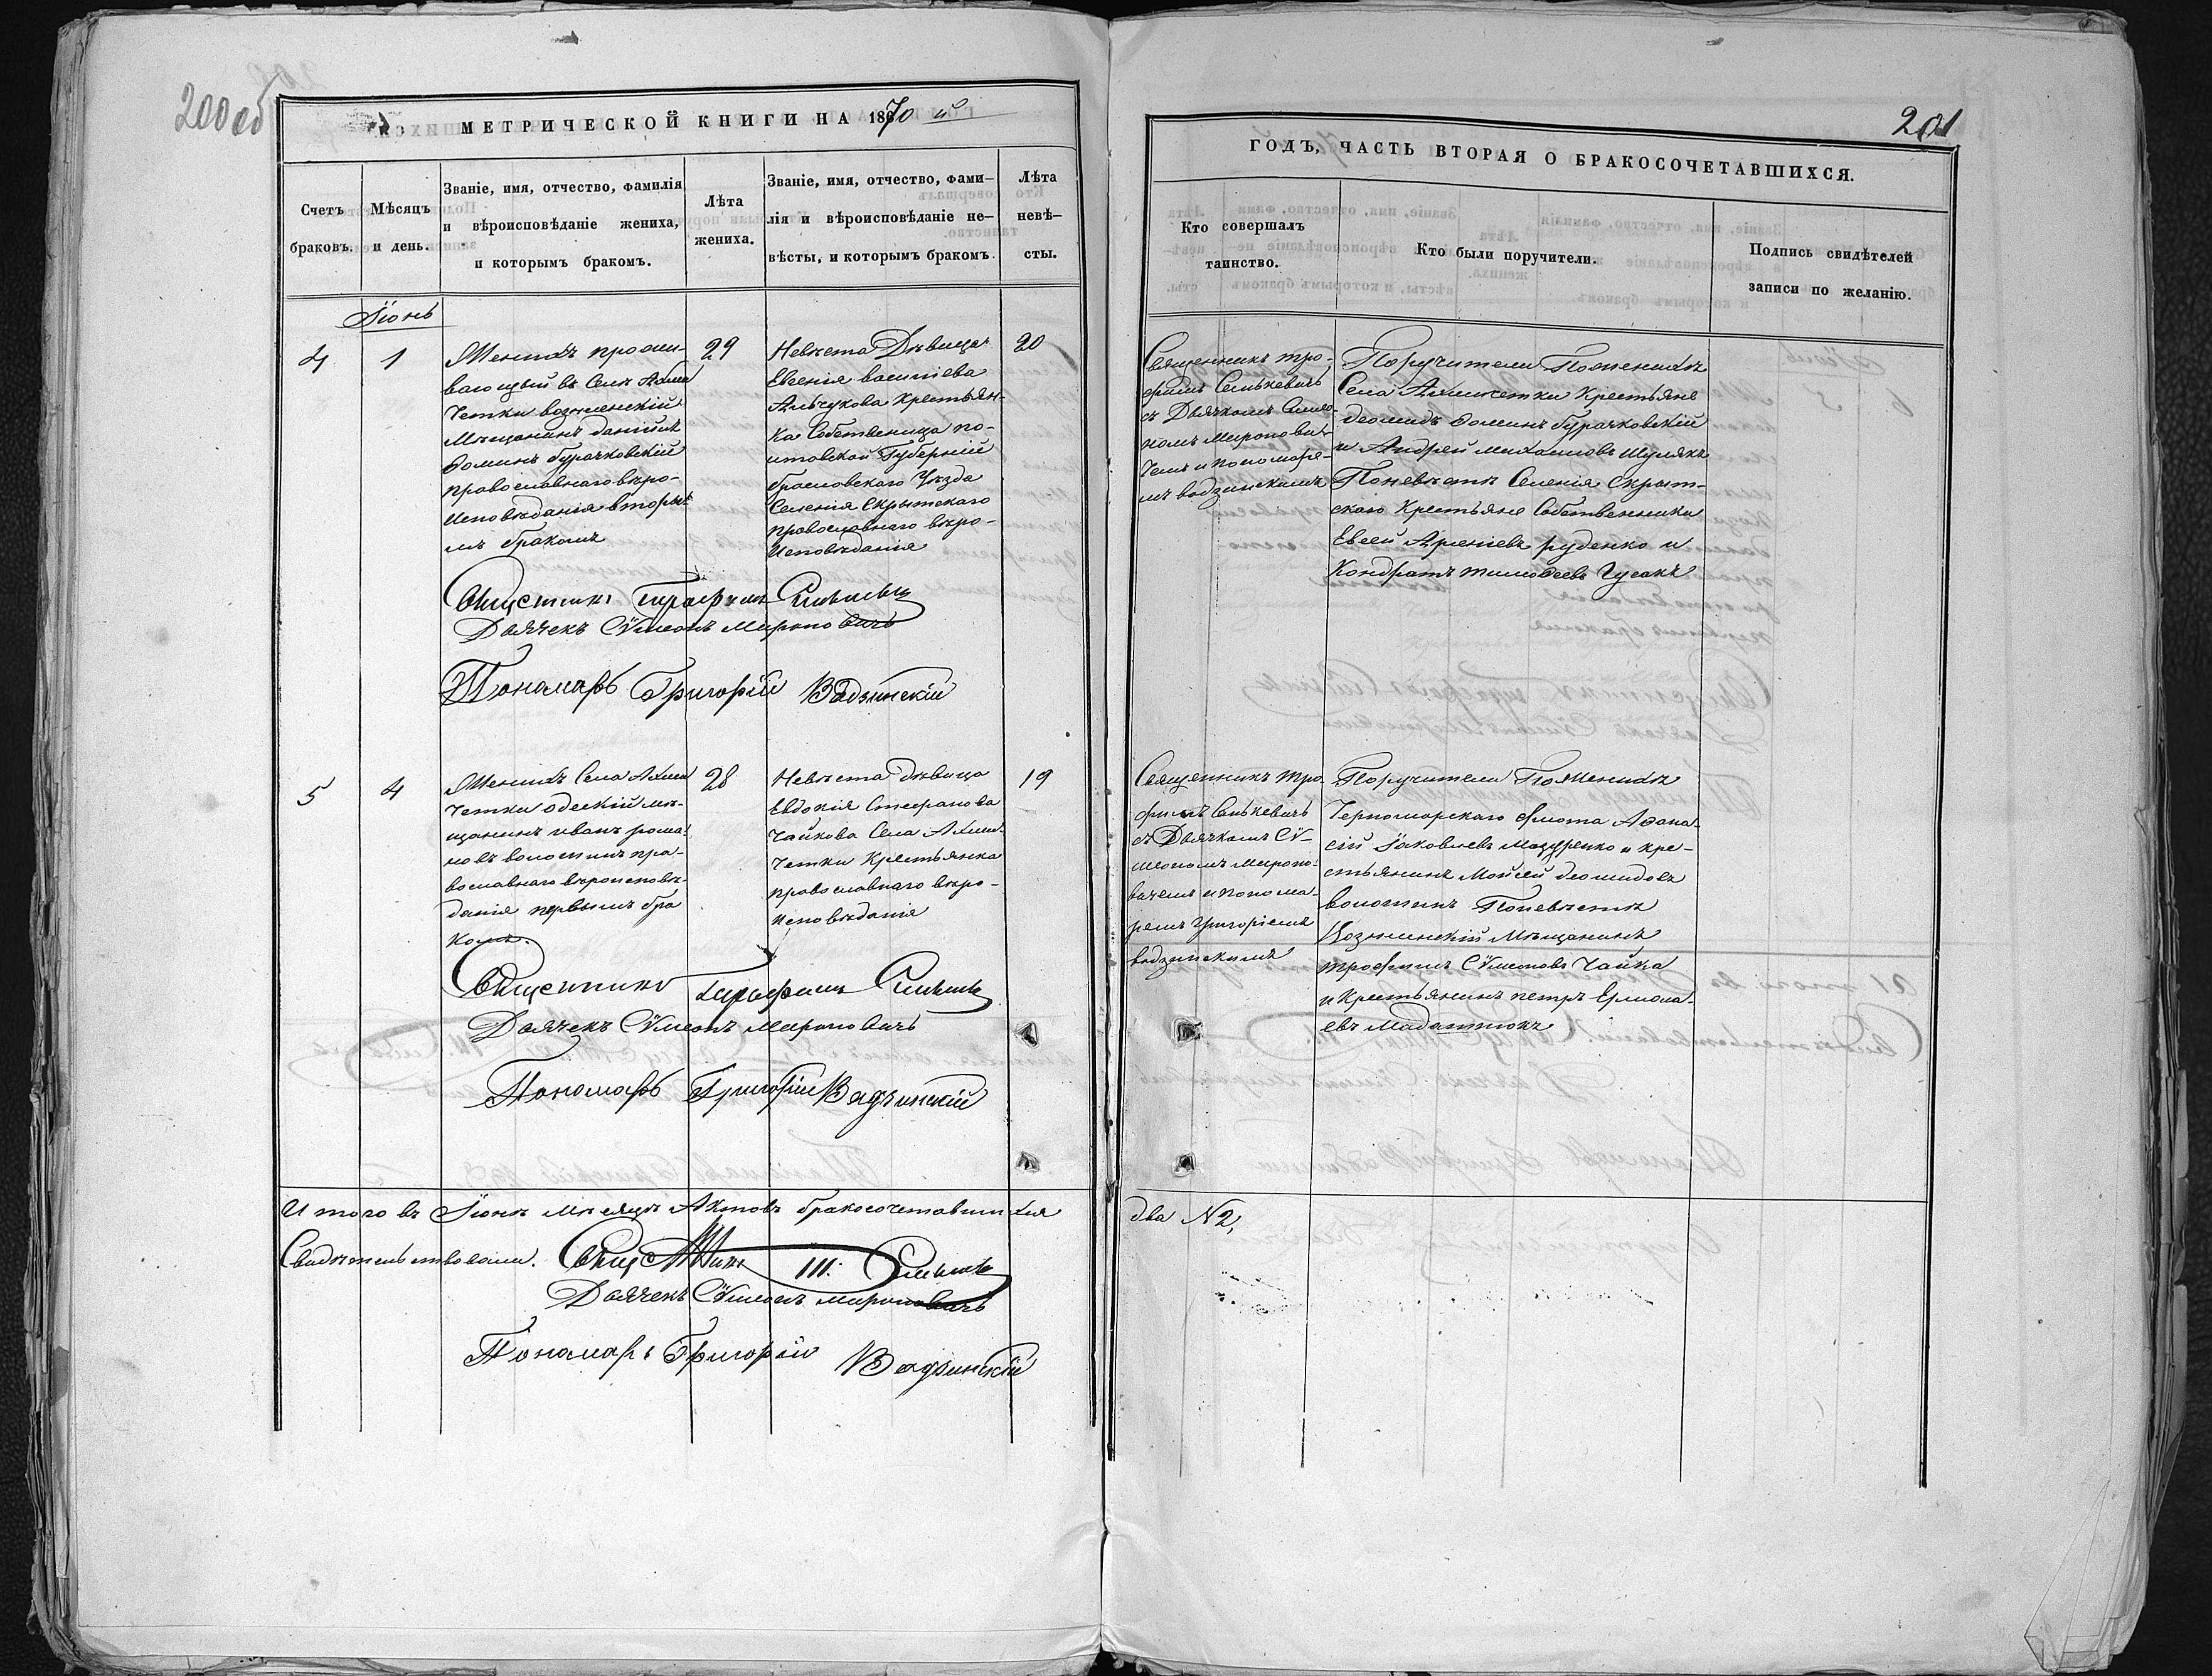 200 об
МЕТРИЧЕСКОЙ КНИГИ НА 1870 й
Счетъ браковъ.
Мѣсяцъ и день.
Званіе, имя, отчество, фамилія
и вѣроисповѣданіе жениха,
и которымъ бракомъ.
Лѣта
жениха.
Званіе, имя, отчество, фами-
лія и вѣроисповѣданіе не-
вѣсты, и которымъ бракомъ
Лѣта
невѣ-
сты.
Іюнь
4
1
Женихъ прожи-
вающый въ Селѣ Ахме
четки вознесенскій
Мѣщанинъ даніилъ
Ѳоминъ бурачковскій
православнаго вѣро-
исповѣданія вторы
мъ бракомъ
29
Невѣста Дѣвица
Евгенія василіева
крестьян-
ка Собственица по-
лтавской Губерніи
Уѣзда
Селенія Скрытскаго
православнаго вѣро-
исповѣданія
20
Священникъ Трофимъ Синькевичъ
Дьячекъ Сѵмеонъ Мироновичъ
Пономарь Григорій Вадзинскій
5
4
Женихъ Села Ахме
четки одескій мѣ-
щанинъ иванъ рома
новъ волошинъ пра-
вославнаго вѣроисповѣ-
данія первымъ бра
комъ.
28
Невѣста дѣвица
Евдокія Стефанова
чайкова Села Ахме-
четки крестьянка
православнаго вѣро-
исповѣданія
19
Священникъ Трофимъ Синькевичъ
Дьячекъ Сѵмеонъ Мироновичъ
Пономарь Григорій Вадзинскій
Итого въ Іюнѣ мѣсяцѣ Актовъ бракосочетавшихся
Свидѣтельствовали. Священникъ Синькевичъ
Дьячекъ Сѵмеонъ мироновичъ
Пономарь Григорій Вадзинскій
201
ГОДЪ, ЧАСТЬ ВТОРАЯ О БРАКОСОЧЕТАВШИХСЯ.
Кто совершалъ
таинство.
Кто были поручители.
Подпись свидѣтелей
записи по желанію.
Священникъ тро-
фимъ Синькевичъ
съ Дьячкомъ Симео-
номъ Миронови
чемъ и пономаре-
мъ вадзинскимъ
Поручители Поженихѣ
Села Ахмечетки Крестьяне
деомидъ Ѳоминъ бурачковскій
и Андрей михаиловъ Шулякъ
Поневѣстѣ Селенія Скрыт-
скаго Крестьяне Собственники
Евсей руденко и
Кондратъ тимоѳеевъ Гусакъ
Священникъ тро
фимъ Синькевичъ
съ Дьячкомъ Сѵ-
меономъ мироно-
вичемъ и понома-
ремъ григоріемъ
вадзинскимъ
Поручители ПоЖенихѣ
Черноморскаго флота Аѳана-
сій Іаковлевъ Мазуренко и кре-
стьянинъ Мойсей деомидовъ
волошинъ Поневѣстѣ
Вознесенскій Мѣщанинъ
трофимъ Сѵмеоновъ Чайка
и Крестьянинъ петръ Ермола-
евъ
два № 2,